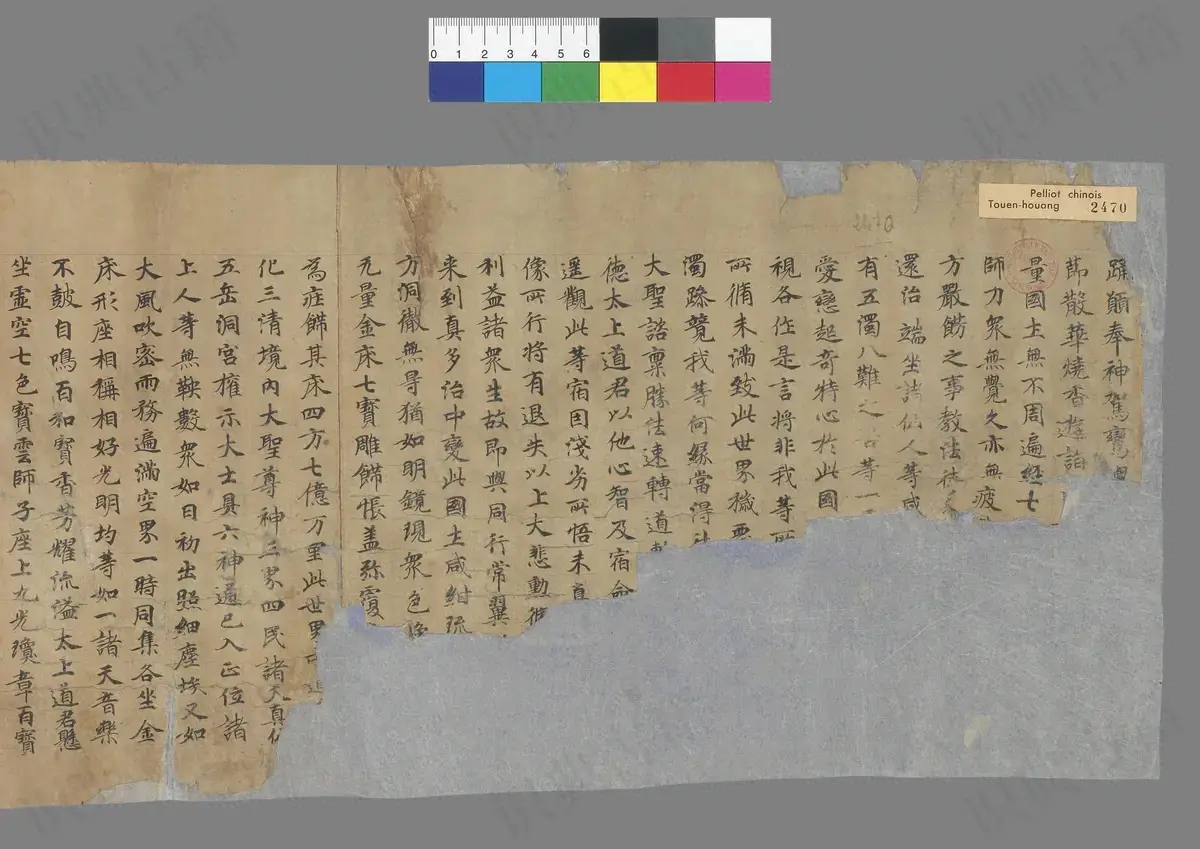 0 1 2 3 4 5 6
Pelliot chinois
Touen-houang 2470
2470
躡顛奉神駕寶
節散華燒香遊詣
量國土無不周遍經七
師力眾無覺久亦無疲
方嚴餝之事教法徒
還治端坐諸仙人等咸
有五濁八難之 等一
愛戀起奇特心於此國
視各作是言將非我等
所循未滿致此世界穢惡
濁躁競我等何緣當得
大聖誥稟勝法速轉道
德太上道君以他心智及宿命
遥觀此等宿因淺劣所悟未真
像所行將有退失以上大悲勳
利益諸眾生故即興同行常翼
来到真多治中變此國土咸紺琉
方洞徹無㝵猶如明鏡現眾色
无量金床七寶雕餝帳盖弥覆
為症餝其床四方七億万里此世界
化三清境內大聖尊神三界四民諸天真仙
五岳洞宮權示大士具六神通已入正位諸
上人等無鞅數眾如日初出照細塵埃又如
大風吹密雨務遍滿空界一時同集各坐金
床形座相稱相好光明均等如一諸天音樂
不鼓自鳴百和寶香芳耀流溢太上道君懸
坐靈空七色寶雲師子座上九光瓊章百寶